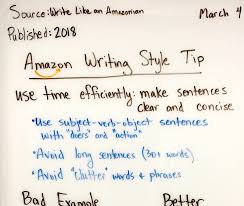 Source: Write Like an Amazonian March 4
Published: 2018
Amazon Writing Style Tip
Use time efficiently: make sentences
clear and concise
• Use subject-verb-object sentences
with "doers" and "action"
• Avoid long sentences (30+ words)
• Avoid "clutter" words & phrases
Bad Example Better